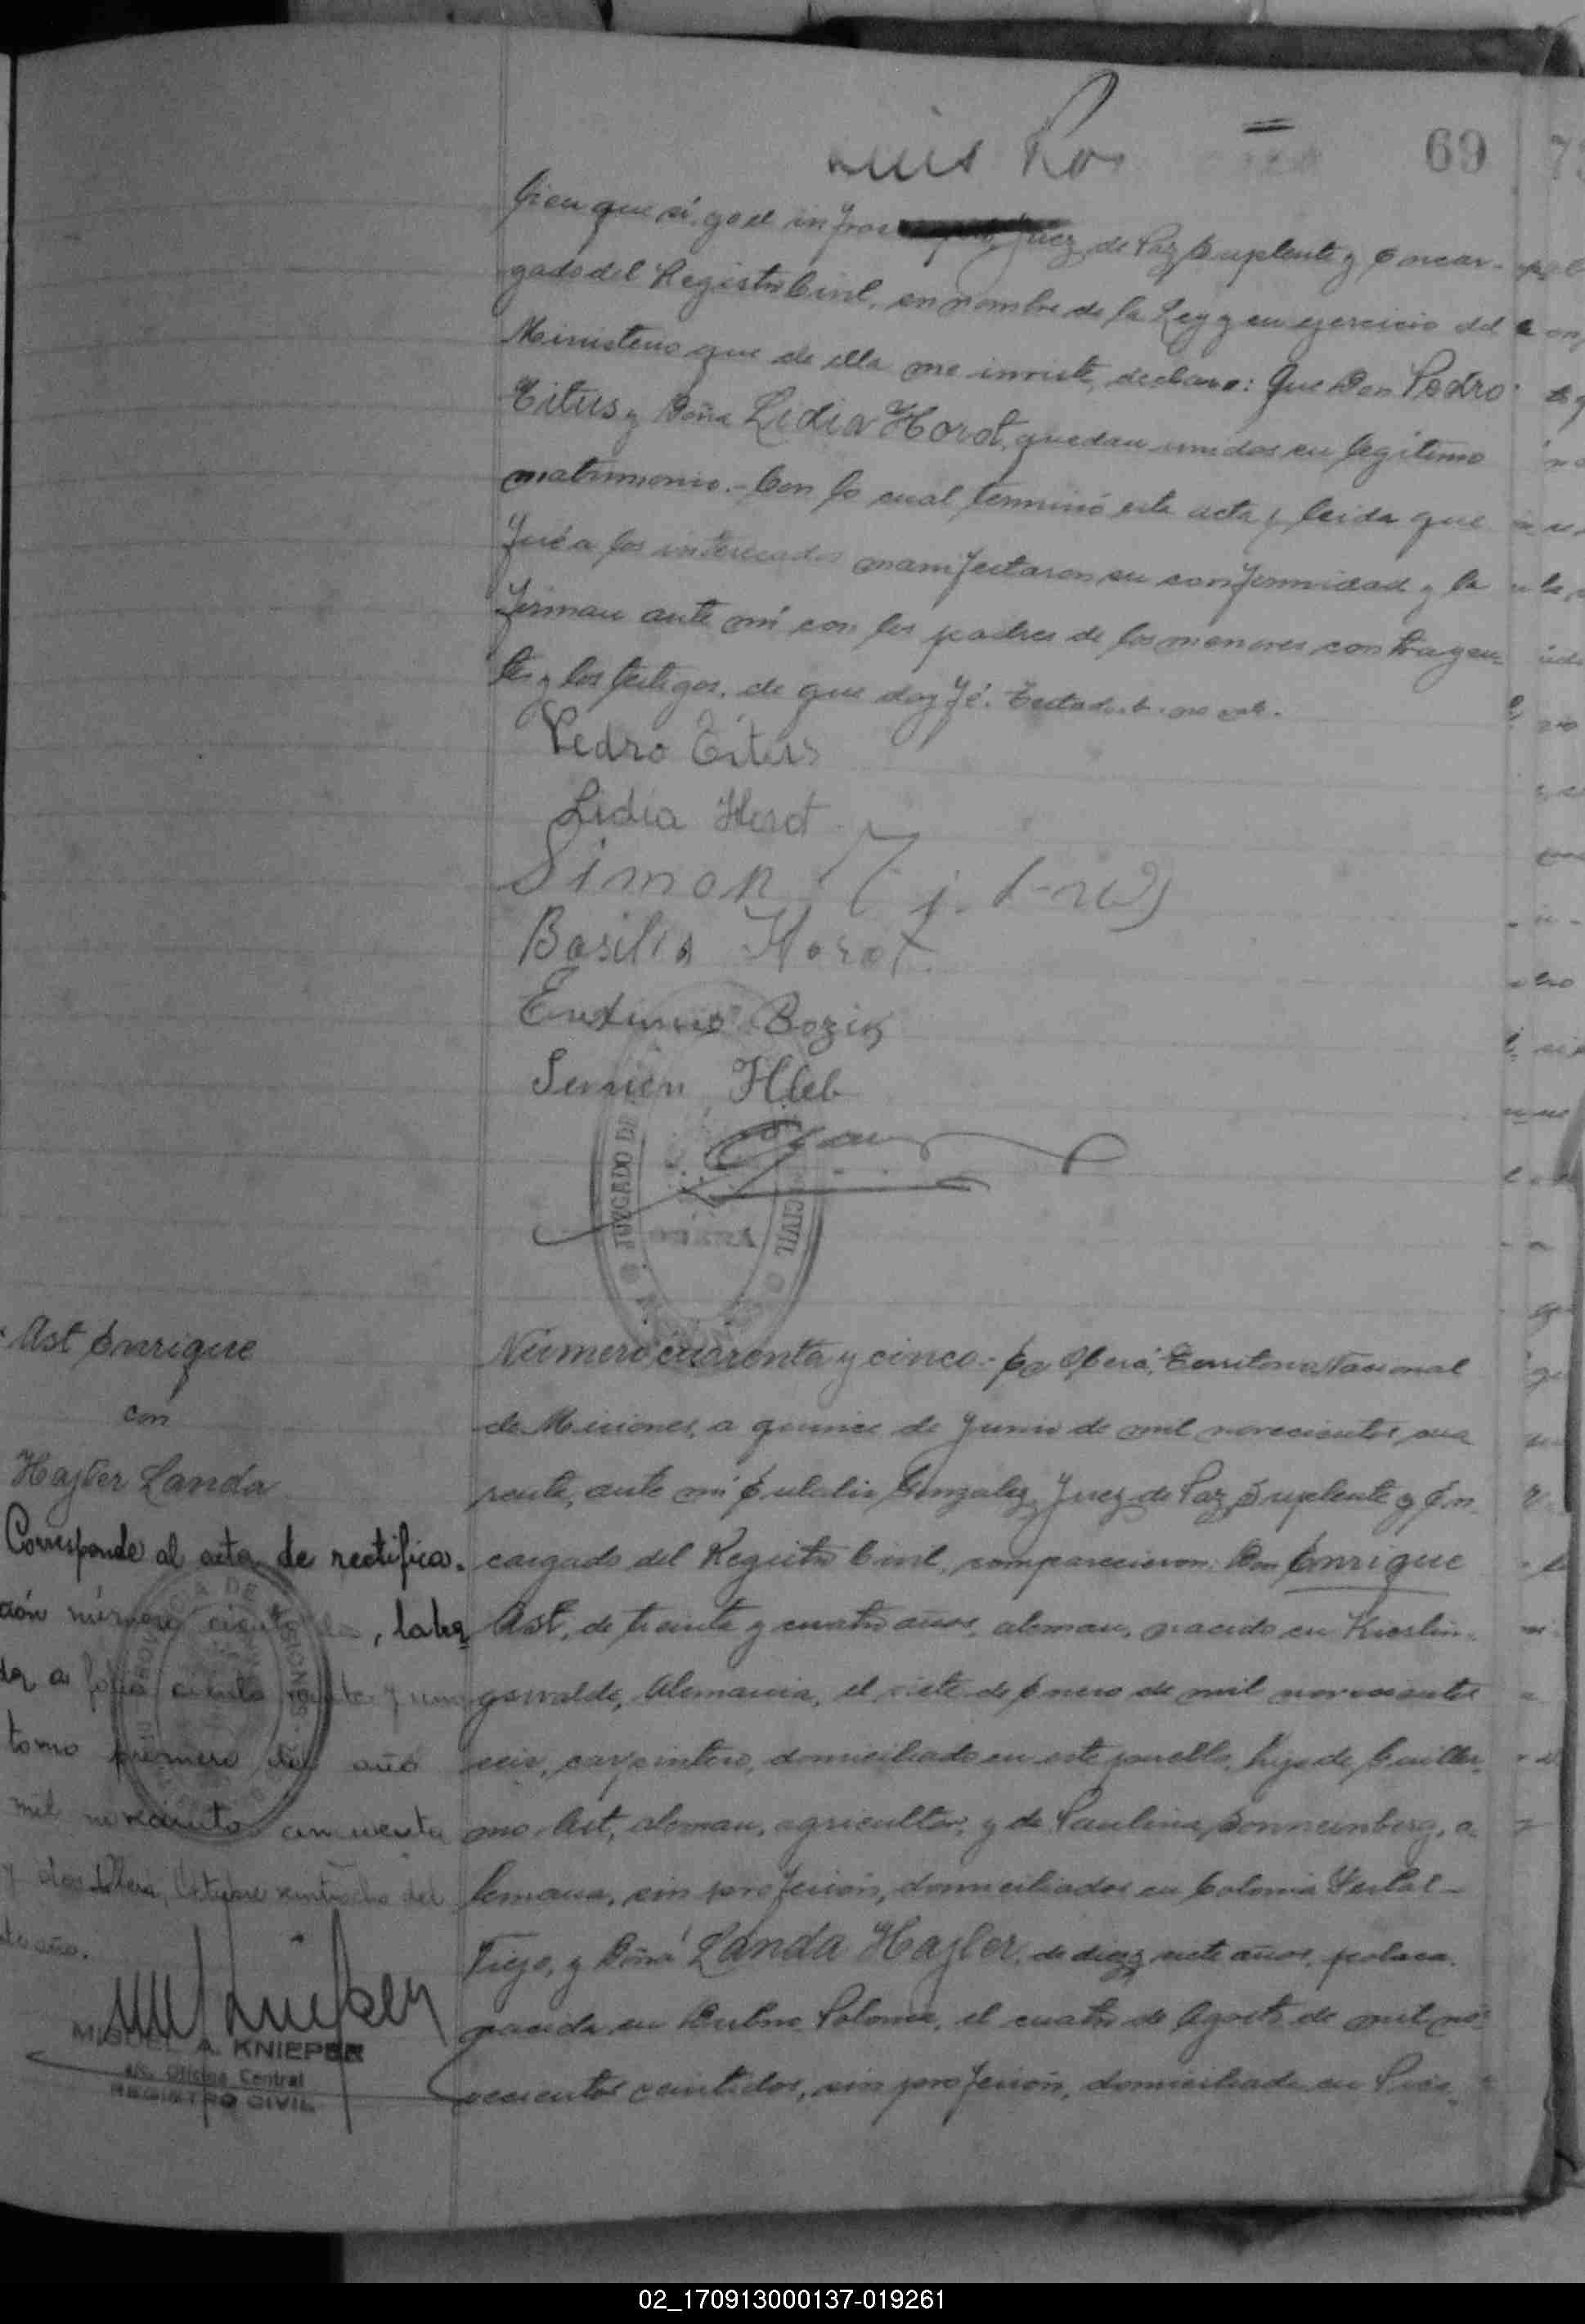 Luis Ros
69
bien que sí, yo el infras Juez de Paz Suplente y Encar-
gado del Registro Civil, en nombre de la Ley y en ejercicio del
Ministerio que de ella me inviste, declaro: Que Don Pedro
Titus y Doña Lidia Horot, quedan unidos en legítimo
matrimonio.- Con lo cual terminó esta acta y leida que
fué a los interesados manifestaron su conformidad y la
firman ante mí con los padres de los menores contrayen-
tes y los testigos, de que doy fé. Testado: no vale.
Pedro Titus
Lidia Horot
Simon
Basilio Horot
Eutimio Bozik
Semién Hleb
JUZGADO DE CIVIL
Ast Enrique
con
Hajler Landa
Corresponde al acta de rectifica-
ción número ciento, labra
da a folio ciento veinte y uno
tomo primero del año
mil novecientos cincuenta
y dos. Oberá, Octubre veintiocho del
año.
MIGUEL A. KNIEPER
a/c. Oficina Central
REGISTRO CIVIL
Número cuarenta y cinco.- En Oberá, Territorio Nacional
de Misiones, a quince de Junio de mil novecientos cua
renta, ante mí Eulalio Gonzalez, Juez de Paz Suplente y En-
cargado del Registro Civil, comparecieron: Don Enrique
Ast, de treinta y cuatro años, aleman, nacido en Kieslin-
gswalde, Alemania, el siete de Enero de mil novecientos
seis, carpintero, domiciliado en este pueblo, hijo de Guiller-
mo Ast, aleman, agricultor, y de Paulina Sonnenberg, a-
lemana, sin profesión, domiciliados en Colonia Yerbal-
Viejo, y Doña Landa Hajler, de diez y siete años, polaca,
nacida en Dubno Polonia, el cuatro de Agosto de mil no-
vecientos veintidos, sin profesión, domiciliada en
02_170913000137-019261